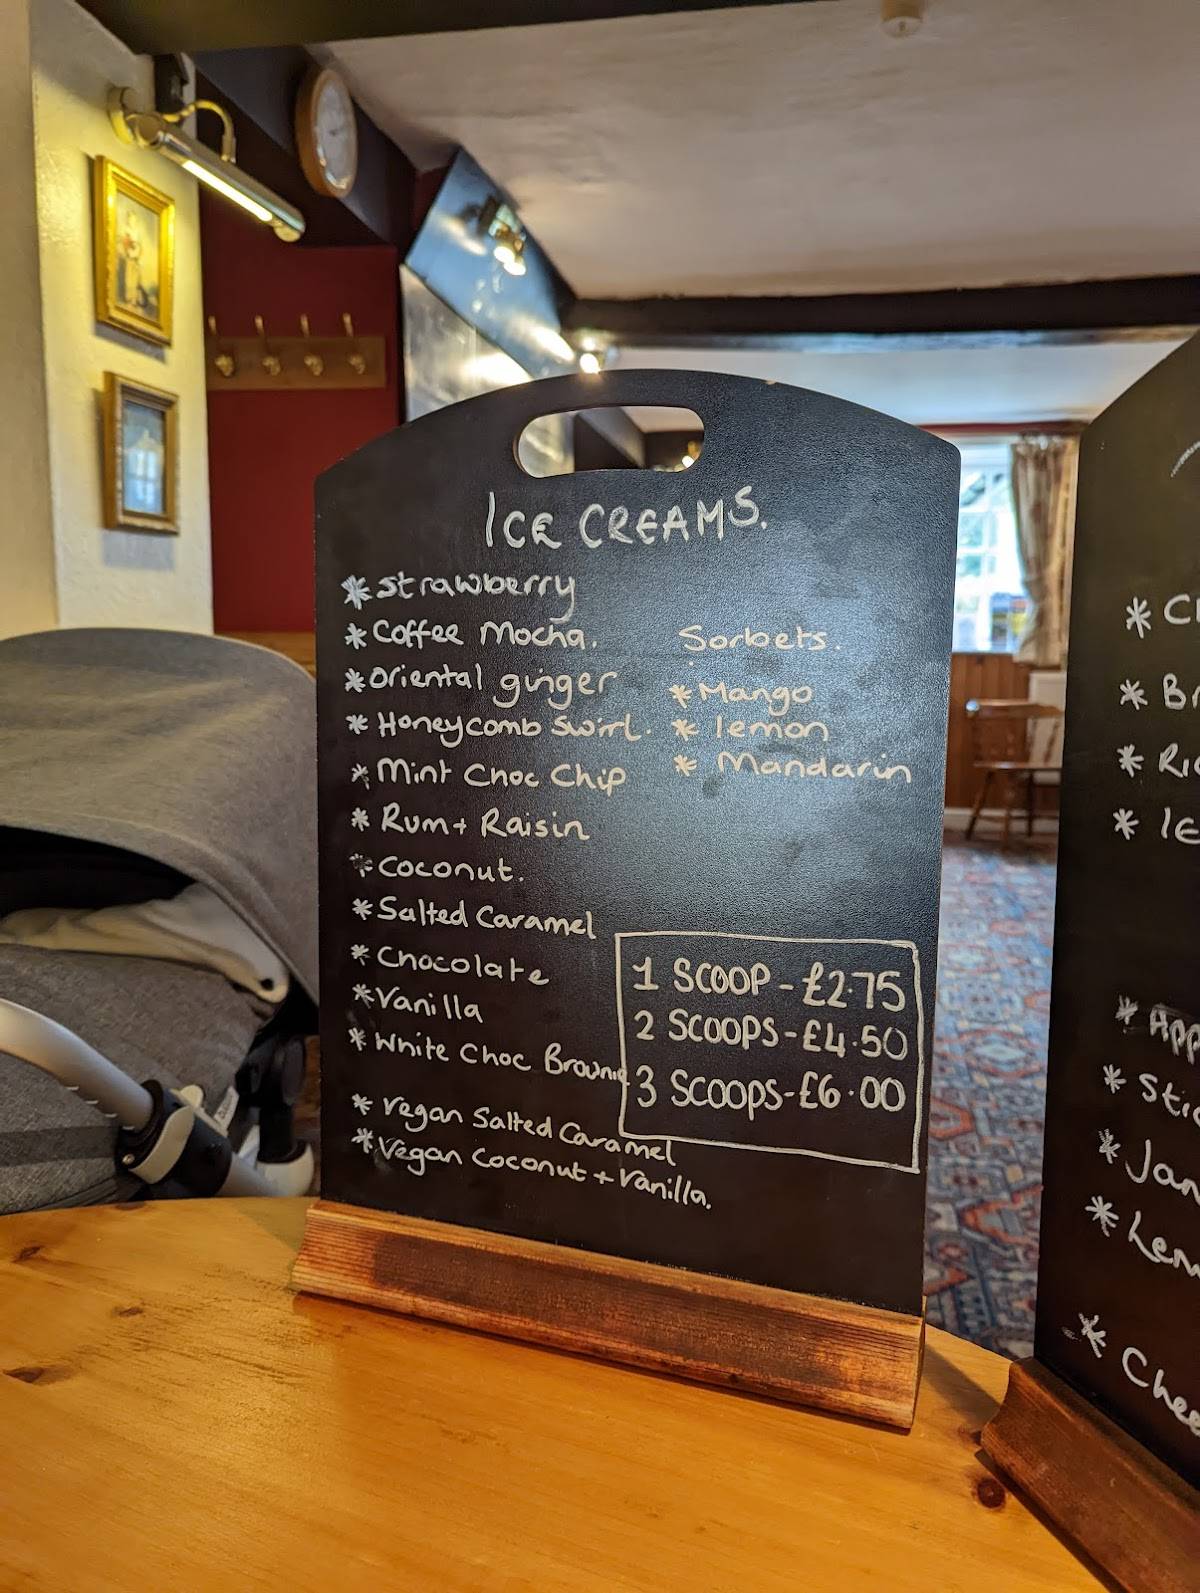 ICE CREAMS.
* Strawberry
* Coffee Mocha.
* Oriental ginger
* Honeycomb Swirl.
* Mint Choc Chip
* Rum + Raisin
* Coconut.
* Salted Caramel
* Chocolate
* Vanilla
* White Choc Brownie
* Vegan Salted Caramel
* Vegan Coconut + Vanilla.
Sorbets.
* Mango
* lemon
* Mandarin
1 SCOOP - £2.75
2 SCOOPS - £4.50
3 SCOOPS - £6.00